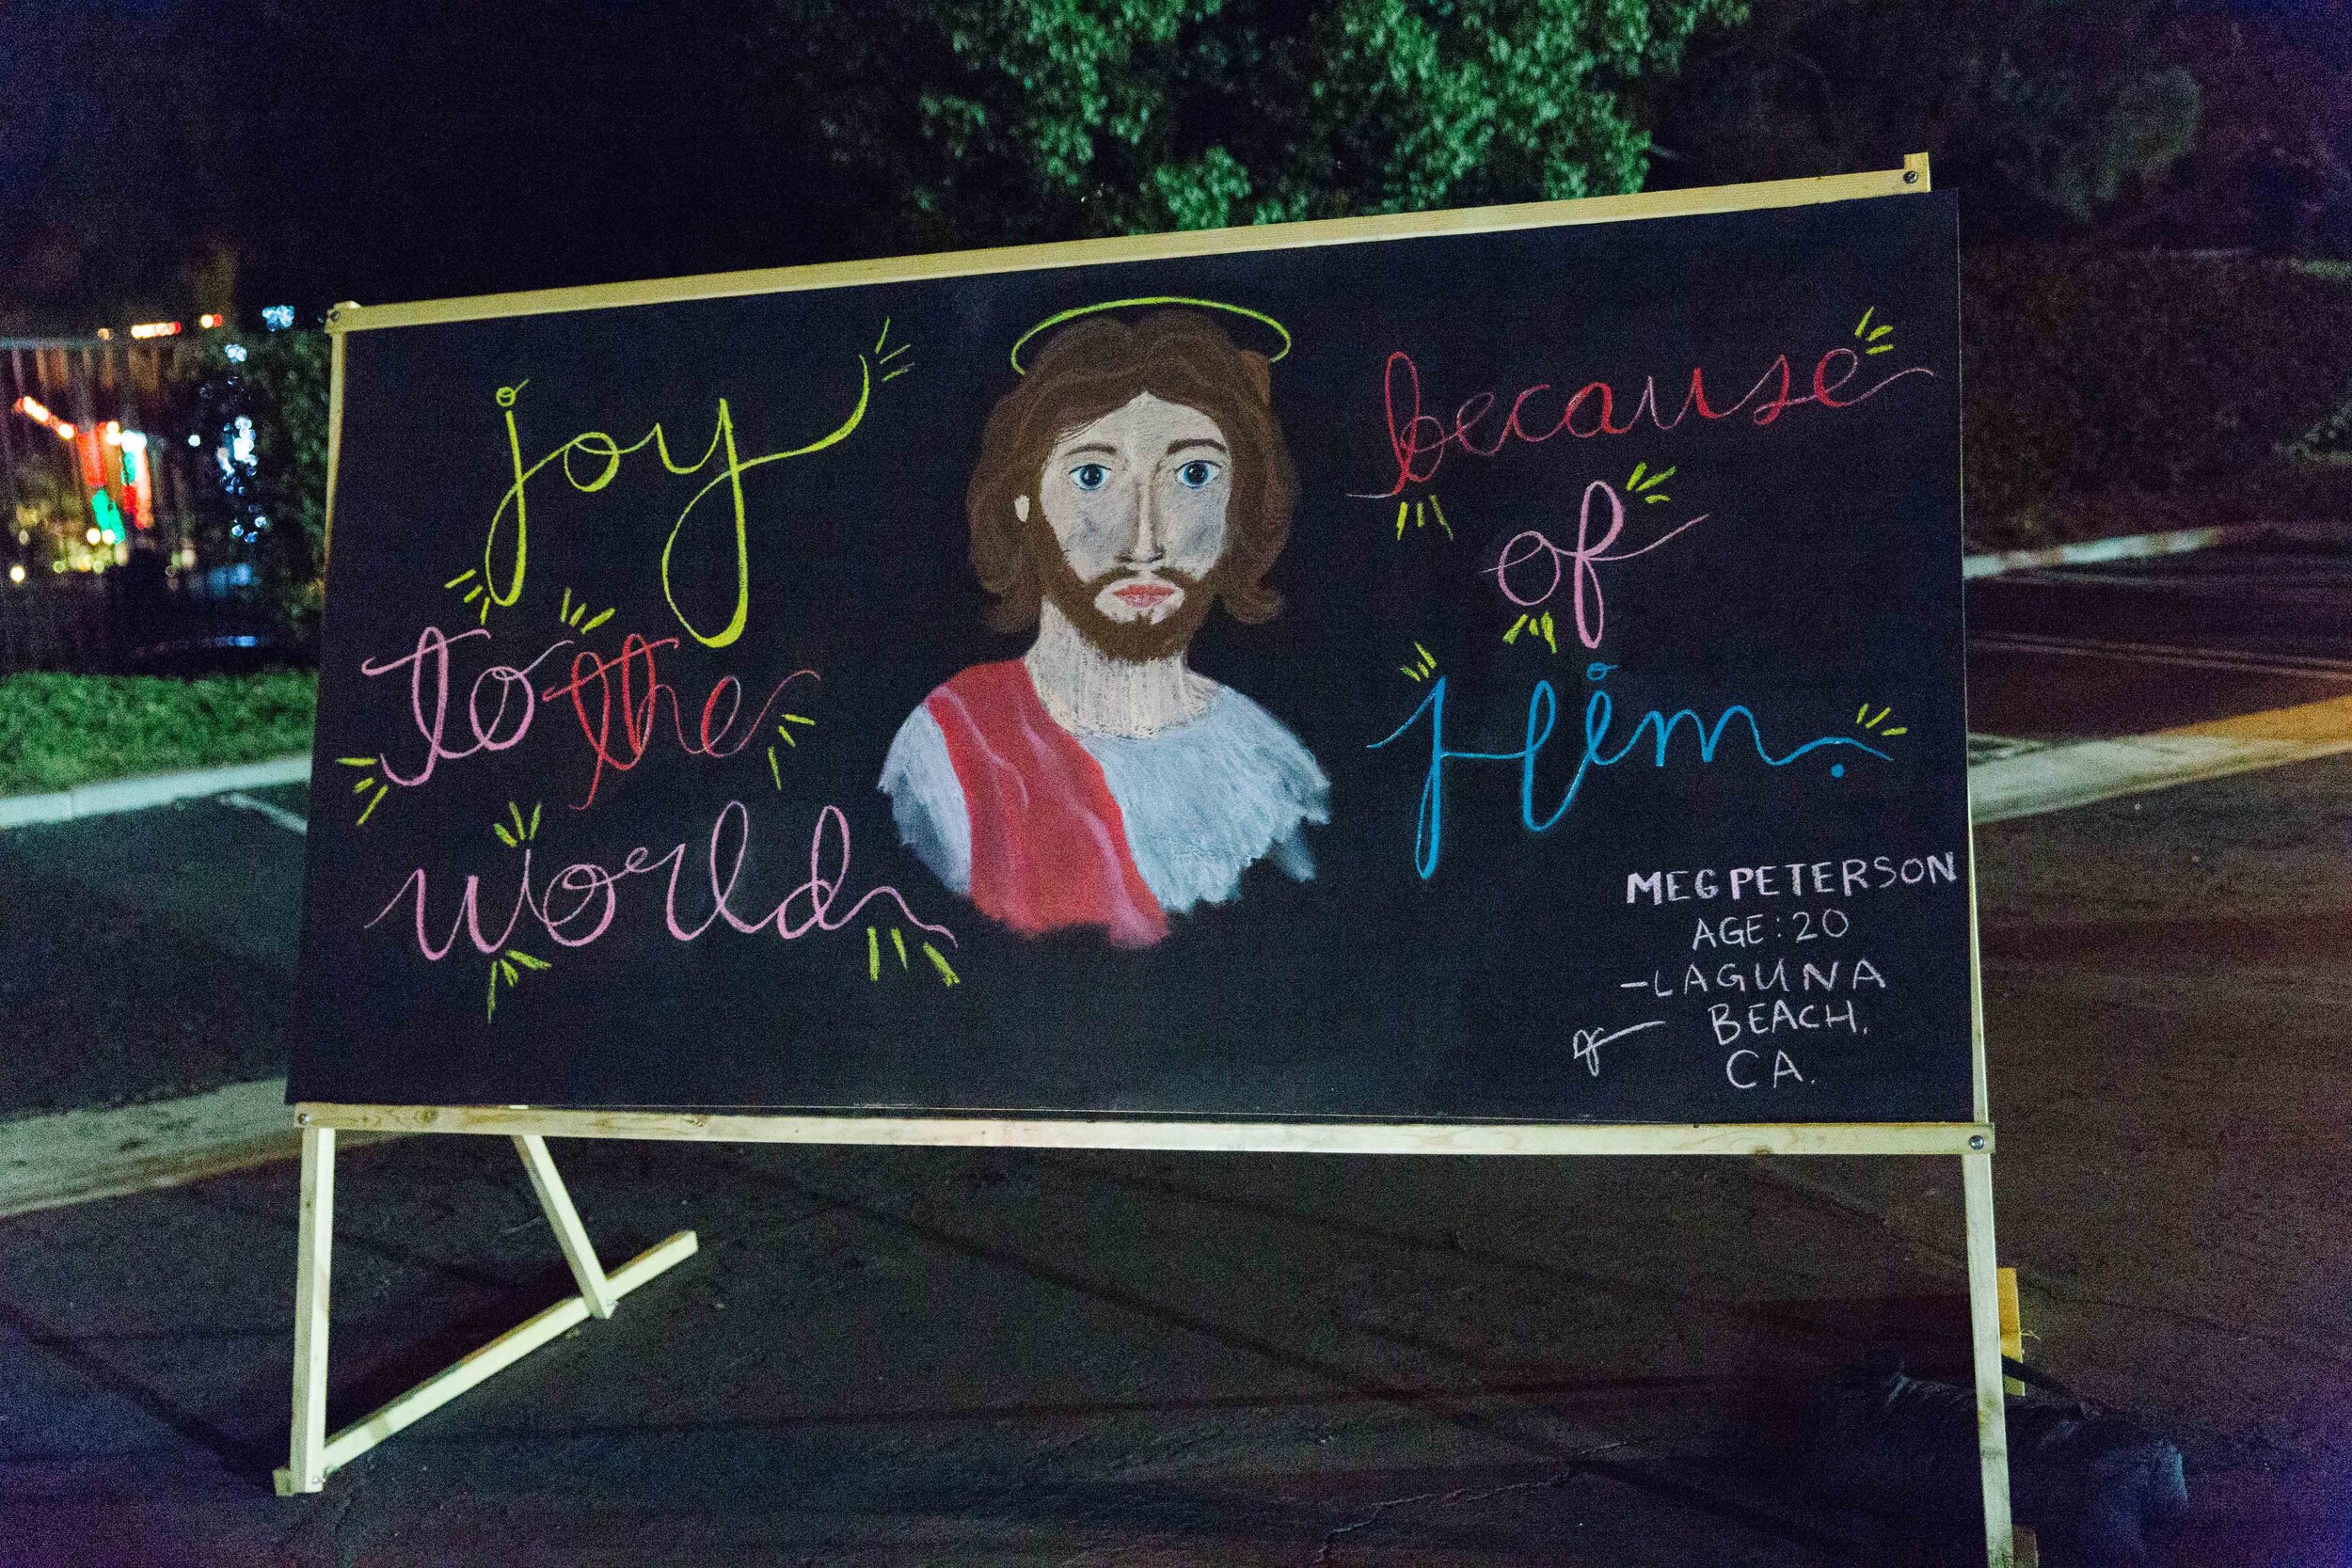 joy
to the
world
because
of
Him.
MEG PETERSON
AGE: 20
-LAGUNA
BEACH,
CA.